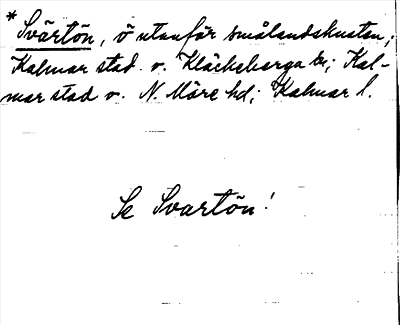 *Svärtön, ö utanför smålandskusten;
Kalmar stad o. Kläckeberga sn; Kal-
mar stad o. N. Möre hd; Kalmar l.
Se Svartön!